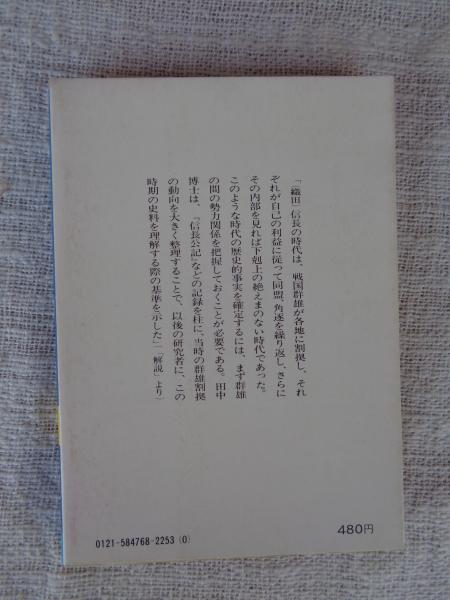 「〔織田〕信長の時代は、戦国群雄が各地に割拠し、それ
ぞれが自己の利益に従って同盟、角逐を繰り返し、さらに
その内部を見れば下剋上の絶えまのない時代であった。
このような時代の歴史的事実を確定するには、まず群雄
の間の勢力関係を把握しておくことが必要である。田中
博士は、『信長公記』などの記録を柱に、当時の群雄割拠
の動向を大きく整理することで、以後の研究者に、この
時期の史料を理解する際の基準を示した」（「解説」より）
0121-584768-2253(0)
480円